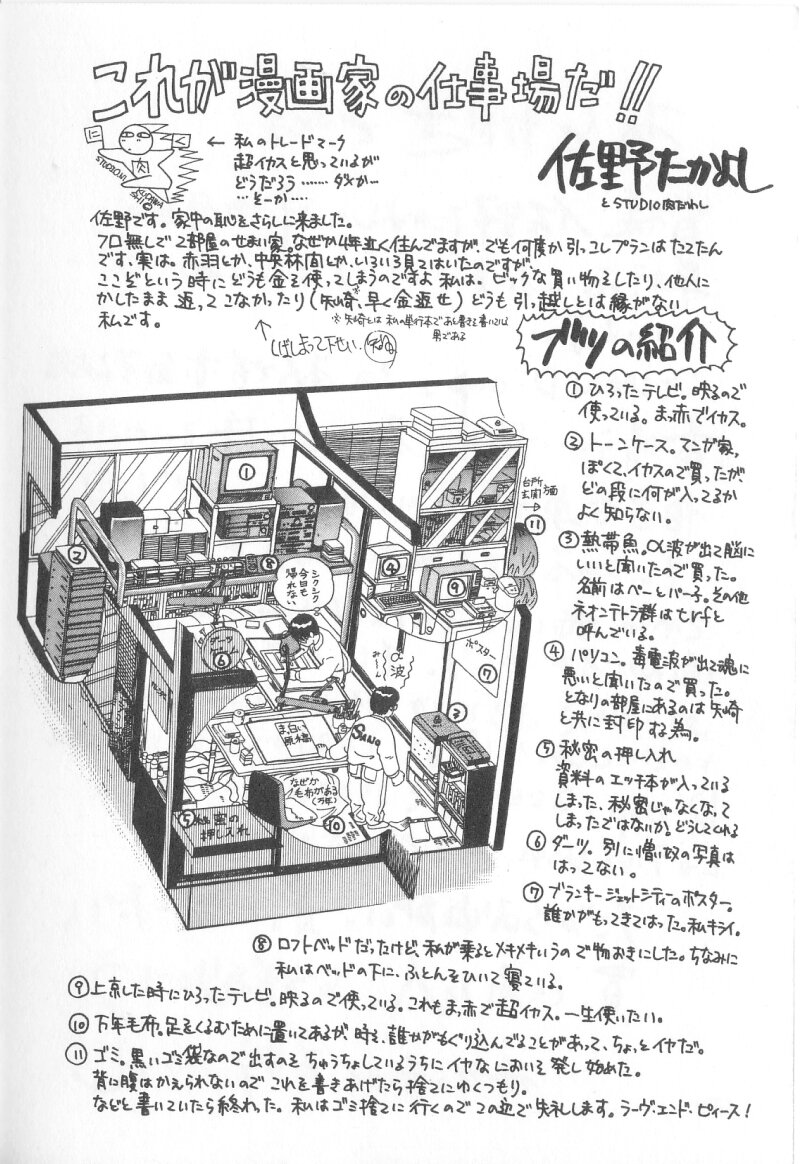 これが漫画家の仕事場だ!!
← 私のトレードマーク
超イカスと思っているが
どうだろう……ダメかー
…そーか…
に 肉 く
佐野たかよし
と STUDIO肉たわし
佐野です。家中の恥をさらしに来ました。
フロ無しで2部屋のせまい家。なぜか4年近く住んでますが、でも何度か引っこしプランはたてたん
です、実は。赤羽とか、中央林間とか、いろいろ見てはいたのですが。
ここぞという時にどうも金を使ってしまうのですよ私は。ビックな買い物をしたり、他人に
かしたまま返ってこなかったり(矢崎※、早く金返せ)どうも引っ越しとは縁がない
私です。
※矢崎とは私の単行本であと書きを書いている
男である
ブツの紹介
① ひろったテレビ。映るので
使っている。まっ赤でイカス。
② トーンケース。マンガ家っ
ぽくて、イカスので買ったが、
どの段に何が入ってるか
よく知らない。
③ 熱帯魚。α波が出て脳に
いいと聞いたので買った。
名前はペーとパー子。その他
ネオンテトラ群はtrfと
呼んでいる。
④ パソコン。毒電波が出て魂に
悪いと聞いたので買った。
となりの部屋にあるのは矢崎
と共に封印する為。
⑤ 秘密の押し入れ
資料のエッチ本が入っている
しまった、秘密じゃなくなって
しまったではないか。どうしてくれる
⑥ ダーツ。別に憎い奴の写真は
はってない。
⑦ ブランキージェットシティーのポスター。
誰かがもってきてはった。私キライ。
①
②
③
④
⑤ 秘密の
押し入れ
⑥
⑦
⑧
⑨
⑩
⑪
台所
玄関 方面
→
シクシク
今日も
帰れない
ポスター
α波
みーん
SANO
まっ白い
原稿
なぜか
毛布がある
(万年)
⑧ ロフトベッドだったけど、私が乗るとメキメキいうので物おきにした。ちなみに
私はベッドの下に、ふとんをひいて寝ている。
⑨ 上京した時にひろったテレビ。映るので使っている。これもまっ赤で超イカス。一生使いたい。
⑩ 万年毛布。足をくるむために置いてあるが、時々、誰かがもぐり込んでることがあって、ちょっとイヤだ。
⑪ ゴミ。黒いゴミ袋なので出すのをちゅうちょしているうちにイヤなにおいを発し始めた。
背に腹はかえられないのでこれを書きあげたら捨てにゆくつもり。
などと書いていたら終わった。私はゴミ捨てに行くのでこの辺で失礼します。ラーヴ・エンド・ピィース!